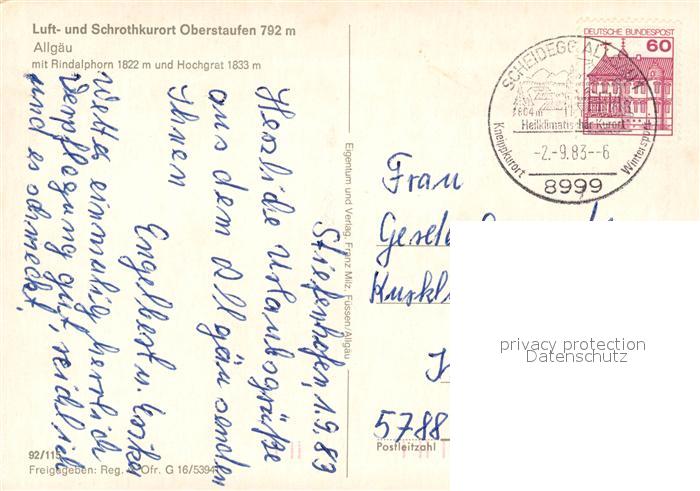 Luft- und Schrothkurort Oberstaufen 792 m
Allgäu
mit Rindalphorn 1822 m und Hochgrat 1833 m
Stiefenhofen, 1.9.83
Herzliche Urlaubsgrüße
aus dem Allgäu senden
Ihnen
Engelbert u.
Wetter einmalig herrlich
Verpflegung gut, reichlich
und es schmeckt.
92/115
Freigegeben: Reg. v. Ofr. G 16/5394
Eigentum und Verlag, Franz Milz, Füssen/Allgäu
DEUTSCHE BUNDESPOST
60
SCHEIDEGG, ALLGÄU
804 m
Heilklimatischer Kurort
Kneippkurort
Wintersport
-2.-9.83--6
8999
Frau
5788
Postleitzahl
privacy protection
Datenschutz